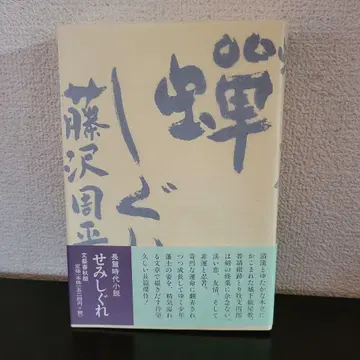 蟬
しぐれ
藤沢周平
清流とゆたかな木立に
かこまれた城下組屋敷。
普請組跡とり牧文四郎
は剣の修業に余念ない。
淡い恋、友情、そして
非運と忍苦。
苛烈な運命に翻弄され
つつ成長してゆく少年
藩士の姿を、精気溢れ
る文章で描きだす待望
久しい長篇傑作!
長篇時代小説
せみしぐれ
文藝春秋刊